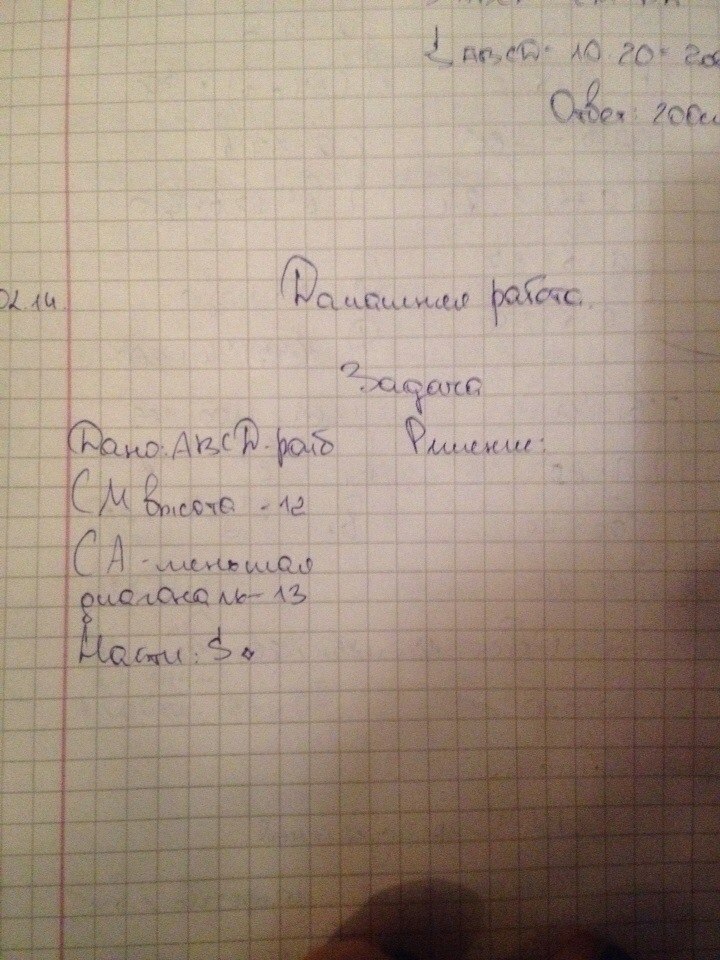 S ABCD = 10 · 20 = 200
Ответ: 200см
02.14.
Домашняя работа.
Задача
Дано: ABCD - ромб Решение:
CM высота - 12
CA - меньшая
диагональ - 13
Найти: S ⋄